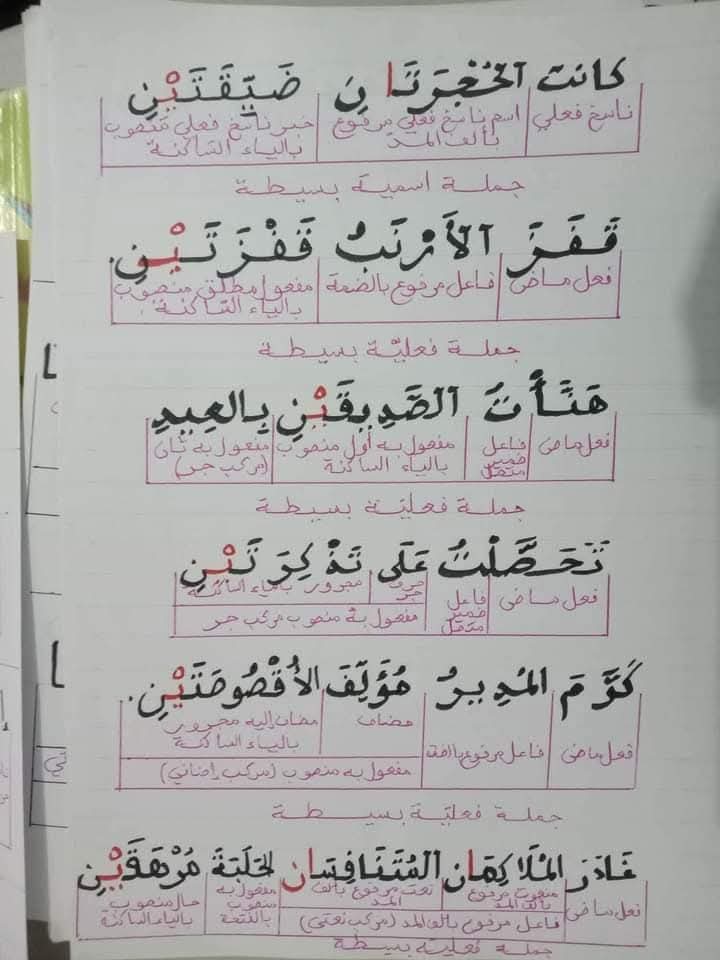 كَانَتْ الحُجْرَتَانِ ضَيِّقَتَيْنِ
ناسخ فعلي اسم ناسخ فعلي مرفوع خبر ناسخ فعلي منصوب
بألف المد بالياء الساكنة
جملة اسمية بسيطة
قَفَزَ الأَرْنَبُ قَفْزَتَيْنِ.
فعل ماض فاعل مرفوع بالضمة مفعول مطلق منصوب
بالياء الساكنة.
جملة فعليّة بسيطة
هَنَّأْتُ الصَّدِيقَيْنِ بِالعِيدِ
فعل ماض فاعل مفعول به أول منصوب مفعول به ثان
ضمير بالياء الساكنة (مركب جر)
متصل
جملة فعليّة بسيطة
تَحَصَّلْتُ عَلَى تَذْكِرَتَيْنِ
فعل ماض فاعل حرف مجرور بالياء الساكنة
ضمير جر
متصل مفعول به منصوب مركب جر
كَرَّمَ المُدِيرُ مُؤَلِّفَ الأُقْصُوصَتَيْنِ.
مضاف مضاف إليه مجرور
بالياء الساكنة
فعل ماض فاعل مرفوع مفعول به منصوب (مركب إضافي)
جملة فعليّة بسيطة
غَادَرَ المُلَاكِمَانِ المُتَنَافِسَانِ الحَلَبَةَ مُرْهَقَيْنِ
فعل ماض منعوت مرفوع نعت مرفوع بألف مفعول به حال منصوب
بألف المد المد منصوب بالياء الساكنة
فاعل مرفوع بألف المد (مركب نعتي) بالفتحة
جملة فعلية بسيطة